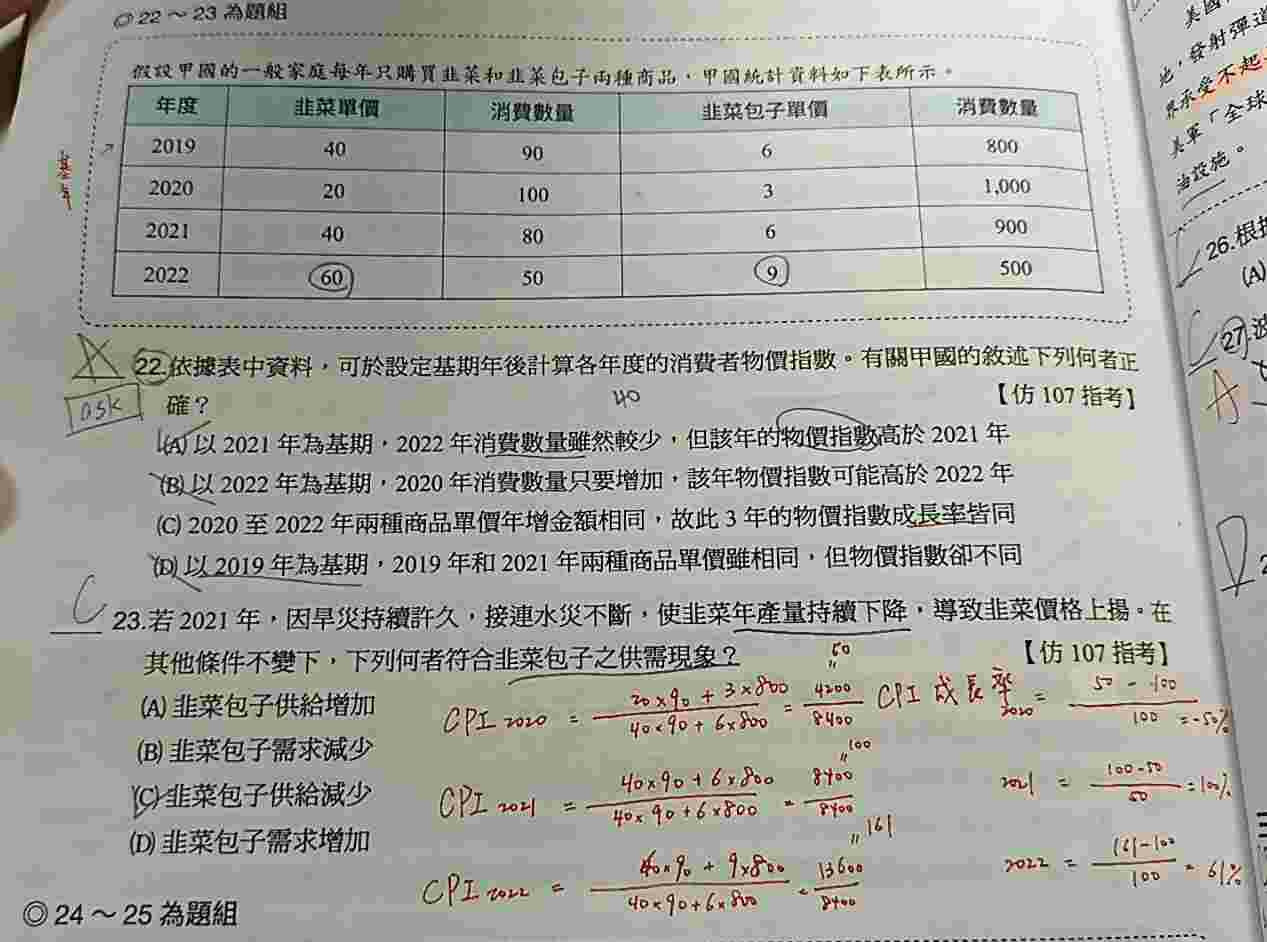 ◎ 22～23 為題組
假設甲國的一般家庭每年只購買韭菜和韭菜包子兩種商品，甲國統計資料如下表所示。
年度 韭菜單價 消費數量 韭菜包子單價 消費數量
基年 ↗ 2019 40 90 6 800
2020 20 100 3 1,000
2021 40 80 6 900
2022 60 50 9 500
22.依據表中資料，可於設定基期年後計算各年度的消費者物價指數。有關甲國的敘述下列何者正
ask 確？ 40 【仿 107 指考】
(A) 以 2021 年為基期，2022 年消費數量雖然較少，但該年的物價指數高於 2021 年
(B) 以 2022 年為基期，2020 年消費數量只要增加，該年物價指數可能高於 2022 年
(C) 2020 至 2022 年兩種商品單價年增金額相同，故此 3 年的物價指數成長率皆同
(D) 以 2019 年為基期，2019 年和 2021 年兩種商品單價雖相同，但物價指數卻不同
C 23.若 2021 年，因旱災持續許久，接連水災不斷，使韭菜年產量持續下降，導致韭菜價格上揚。在
其他條件不變下，下列何者符合韭菜包子之供需現象？ 【仿 107 指考】
(A) 韭菜包子供給增加
(B) 韭菜包子需求減少
(C) 韭菜包子供給減少
(D) 韭菜包子需求增加
CPI 2020 = 20×90 + 3×800 / 40×90 + 6×800 = 4200 / 8400 = 50 CPI 成長率 2020 = 50 - 100 / 100 = -50%
CPI 2021 = 40×90 + 6×800 / 40×90 + 6×800 = 8400 / 8400 = 100 2021 = 100-50 / 50 = 100%
CPI 2022 = 60×90 + 9×800 / 40×90 + 6×800 = 13600 / 8400 = 161 2022 = 161-100 / 100 = 61%
◎ 24～25 為題組
美國
地，發射彈道
界承受不起
美軍「全球
油設施。
26.根據
(A)
C 27.
A
D